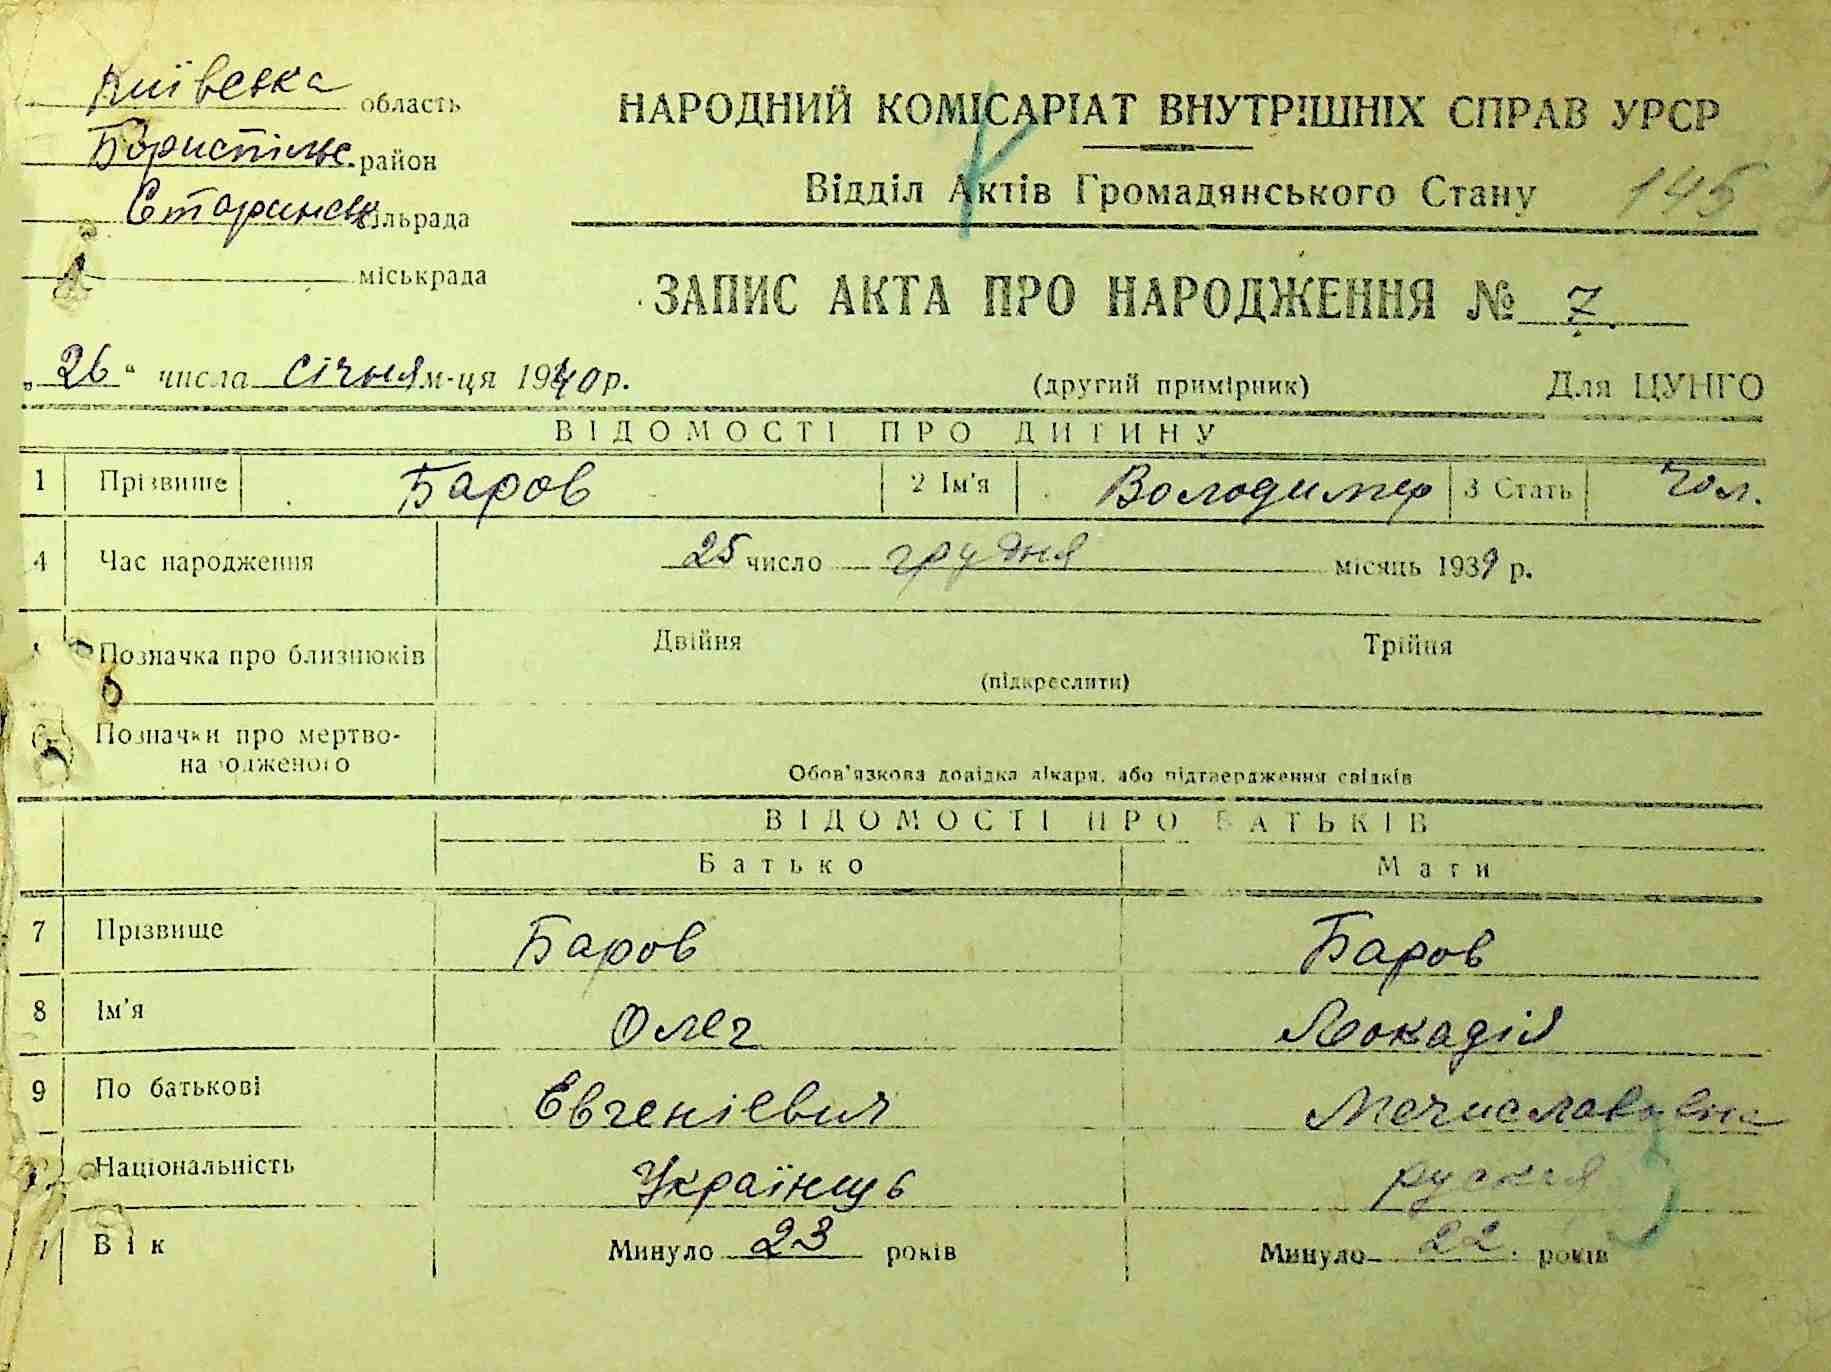 Київська область
Бориспільс. район
Старинськ сільрада
міськрада
НАРОДНИЙ КОМІСАРІАТ ВНУТРІШНІХ СПРАВ УРСР
Відділ Актів Громадянського Стану
145
ЗАПИС АКТА ПРО НАРОДЖЕННЯ № 7.
„26“ числа січня м-ця 1940 р. (другий примірник) Для ЦУНГО
ВІДОМОСТІ ПРО ДИТИНУ
1 Прізвище Баров 2 Ім'я Володимер 3 Стать Чол.
4 Час народження 25 число грудня місяць 1939 р.
Позначка про близнюків Двійня Трійня
(підкреслити)
6 Позначки про мертво-
народженого
Обов'язкова довідка лікаря, або підтвердження свідків
ВІДОМОСТІ ПРО БАТЬКІВ
Батько Мати
7 Прізвище Баров Баров
8 Ім'я Олег Леокадія
9 По батькові Евгеніевич Мечиславовна
Національність Українць руская
Вік Минуло 23 років Минуло 22. років